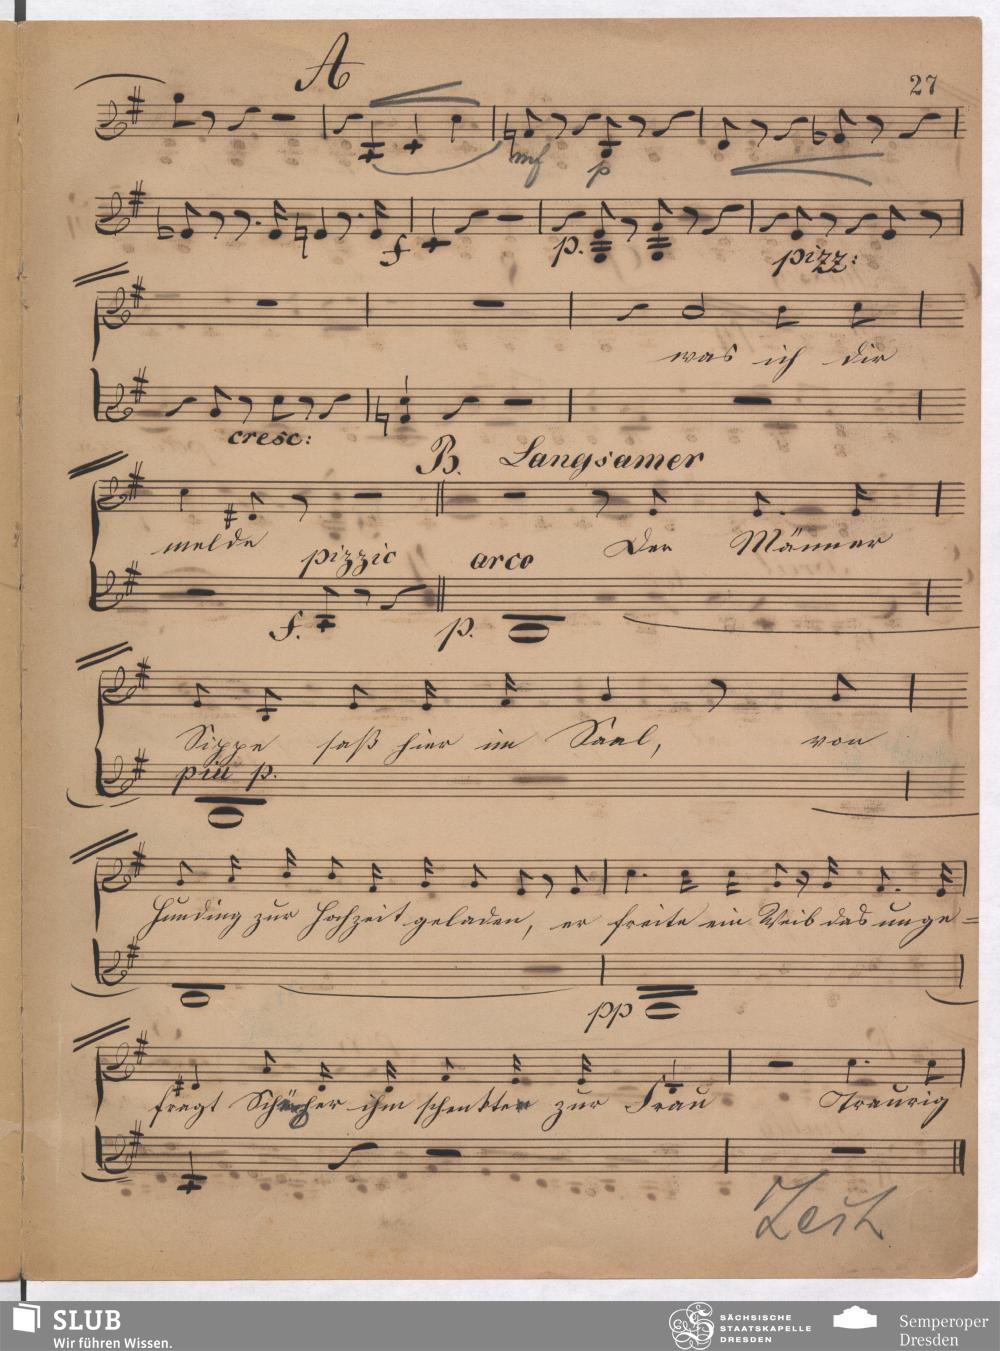 A
27
mf
p
f
p.
pizz:
was ich dir
cresc:
B. Langsamer
melde
Der Männer
pizzic
arco
f.
p.
Sippe saß hier im Saal, von
piu p.
Hunding zur Hochzeit geladen, er freite ein Weib das unge=
pp
fragt Schächer ihm schenkten zur Frau Traurig
SLUB
Wir führen Wissen.
SÄCHSISCHE
STAATSKAPELLE
DRESDEN
Semperoper
Dresden